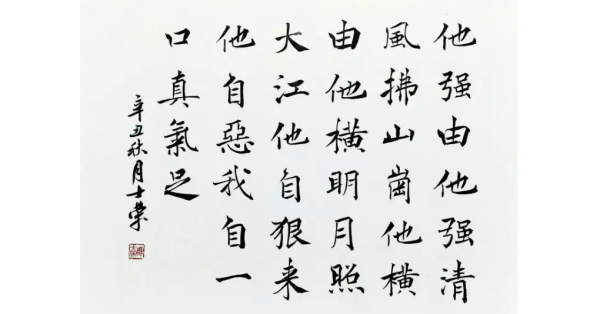 他强由他强清
風拂山崗他横
由他横明月照
大江他自狠来
他自惡我自一
口真氣足
辛丑秋月士荣